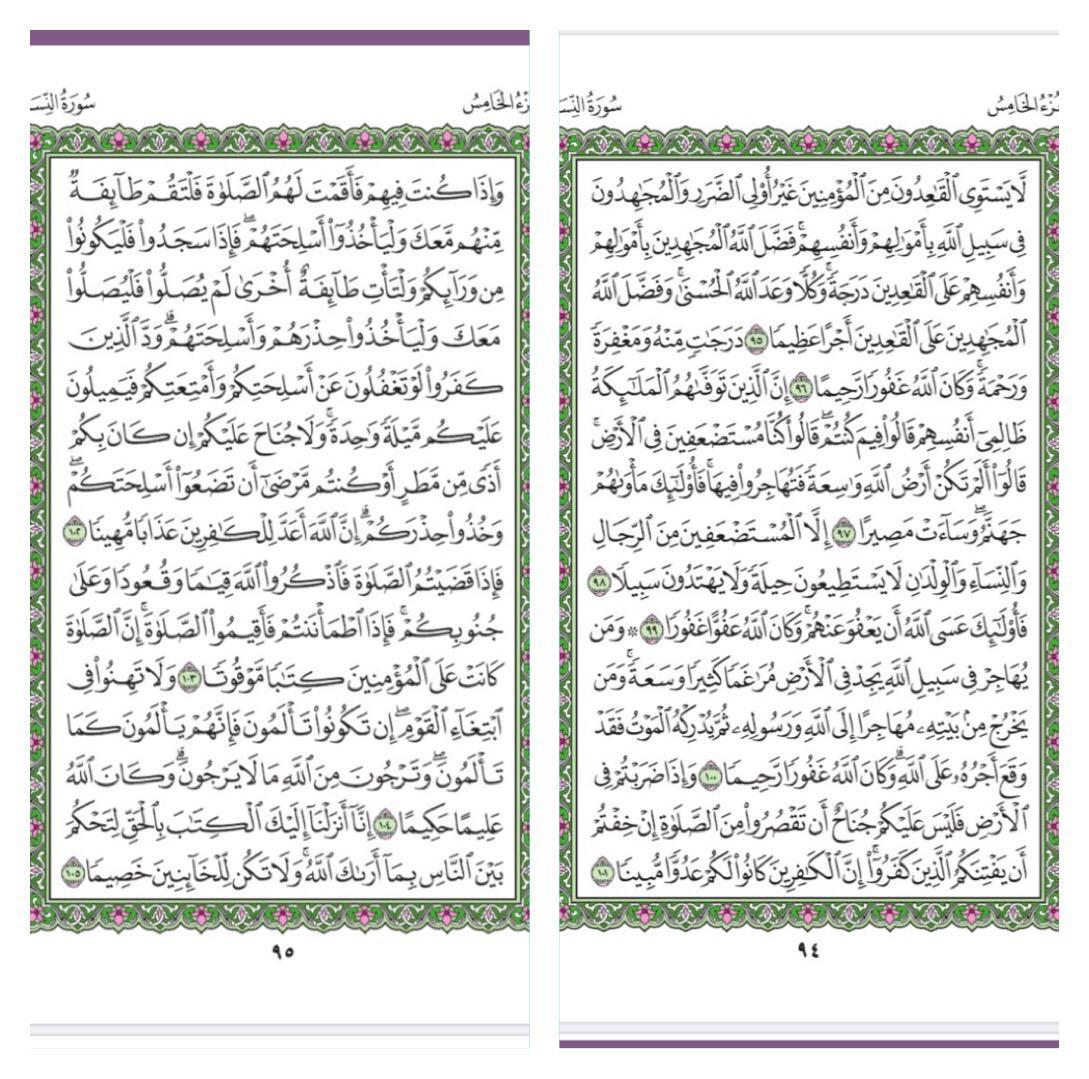 الجزء الخامس
سورة النس
لَّا يَسْتَوِي الْقَاعِدُونَ مِنَ الْمُؤْمِنِينَ غَيْرُ أُوْلِي الضَّرَرِ وَالْمُجَاهِدُونَ
فِي سَبِيلِ اللَّهِ بِأَمْوَالِهِمْ وَأَنفُسِهِمْ ۚ فَضَّلَ اللَّهُ الْمُجَاهِدِينَ بِأَمْوَالِهِمْ
وَأَنفُسِهِمْ عَلَى الْقَاعِدِينَ دَرَجَةً ۚ وَكُلًّا وَعَدَ اللَّهُ الْحُسْنَىٰ ۚ وَفَضَّلَ اللَّهُ
الْمُجَاهِدِينَ عَلَى الْقَاعِدِينَ أَجْرًا عَظِيمًا ٩٥ دَرَجَاتٍ مِّنْهُ وَمَغْفِرَةً
وَرَحْمَةً ۚ وَكَانَ اللَّهُ غَفُورًا رَّحِيمًا ٩٦ إِنَّ الَّذِينَ تَوَفَّاهُمُ الْمَلَائِكَةُ
ظَالِمِي أَنفُسِهِمْ قَالُوا فِيمَ كُنتُمْ ۖ قَالُوا كُنَّا مُسْتَضْعَفِينَ فِي الْأَرْضِ ۚ
قَالُوا أَلَمْ تَكُنْ أَرْضُ اللَّهِ وَاسِعَةً فَتُهَاجِرُوا فِيهَا ۚ فَأُولَٰئِكَ مَأْوَاهُمْ
جَهَنَّمُ ۖ وَسَاءَتْ مَصِيرًا ٩٧ إِلَّا الْمُسْتَضْعَفِينَ مِنَ الرِّجَالِ
وَالنِّسَاءِ وَالْوِلْدَانِ لَا يَسْتَطِيعُونَ حِيلَةً وَلَا يَهْتَدُونَ سَبِيلًا ٩٨
فَأُولَٰئِكَ عَسَى اللَّهُ أَن يَعْفُوَ عَنْهُمْ ۚ وَكَانَ اللَّهُ عَفُوًّا غَفُورًا ٩٩ ۞ وَمَن
يُهَاجِرْ فِي سَبِيلِ اللَّهِ يَجِدْ فِي الْأَرْضِ مُرَاغَمًا كَثِيرًا وَسَعَةً ۚ وَمَن
يَخْرُجْ مِنْ بَيْتِهِ مُهَاجِرًا إِلَى اللَّهِ وَرَسُولِهِ ثُمَّ يُدْرِكْهُ الْمَوْتُ فَقَدْ
وَقَعَ أَجْرُهُ عَلَى اللَّهِ ۗ وَكَانَ اللَّهُ غَفُورًا رَّحِيمًا ١٠٠ وَإِذَا ضَرَبْتُمْ فِي
الْأَرْضِ فَلَيْسَ عَلَيْكُمْ جُنَاحٌ أَن تَقْصُرُوا مِنَ الصَّلَاةِ إِنْ خِفْتُمْ
أَن يَفْتِنَكُمُ الَّذِينَ كَفَرُوا ۚ إِنَّ الْكَافِرِينَ كَانُوا لَكُمْ عَدُوًّا مُّبِينًا ١٠١
٩٤
الجزء الخامس
سورة النس
وَإِذَا كُنتَ فِيهِمْ فَأَقَمْتَ لَهُمُ الصَّلَاةَ فَلْتَقُمْ طَائِفَةٌ
مِّنْهُم مَّعَكَ وَلْيَأْخُذُوا أَسْلِحَتَهُمْ ۖ فَإِذَا سَجَدُوا فَلْيَكُونُوا
مِن وَرَائِكُمْ وَلْتَأْتِ طَائِفَةٌ أُخْرَىٰ لَمْ يُصَلُّوا فَلْيُصَلُّوا
مَعَكَ وَلْيَأْخُذُوا حِذْرَهُمْ وَأَسْلِحَتَهُمْ ۗ وَدَّ الَّذِينَ
كَفَرُوا لَوْ تَغْفُلُونَ عَنْ أَسْلِحَتِكُمْ وَأَمْتِعَتِكُمْ فَيَمِيلُونَ
عَلَيْكُم مَّيْلَةً وَاحِدَةً ۚ وَلَا جُنَاحَ عَلَيْكُمْ إِن كَانَ بِكُمْ
أَذًى مِّن مَّطَرٍ أَوْ كُنتُم مَّرْضَىٰ أَن تَضَعُوا أَسْلِحَتَكُمْ ۖ
وَخُذُوا حِذْرَكُمْ ۗ إِنَّ اللَّهَ أَعَدَّ لِلْكَافِرِينَ عَذَابًا مُّهِينًا ١٠٢
فَإِذَا قَضَيْتُمُ الصَّلَاةَ فَاذْكُرُوا اللَّهَ قِيَامًا وَقُعُودًا وَعَلَىٰ
جُنُوبِكُمْ ۚ فَإِذَا اطْمَأْنَنتُمْ فَأَقِيمُوا الصَّلَاةَ ۚ إِنَّ الصَّلَاةَ
كَانَتْ عَلَى الْمُؤْمِنِينَ كِتَابًا مَّوْقُوتًا ١٠٣ وَلَا تَهِنُوا فِي
ابْتِغَاءِ الْقَوْمِ ۖ إِن تَكُونُوا تَأْلَمُونَ فَإِنَّهُمْ يَأْلَمُونَ كَمَا
تَأْلَمُونَ ۖ وَتَرْجُونَ مِنَ اللَّهِ مَا لَا يَرْجُونَ ۗ وَكَانَ اللَّهُ
عَلِيمًا حَكِيمًا ١٠٤ إِنَّا أَنزَلْنَا إِلَيْكَ الْكِتَابَ بِالْحَقِّ لِتَحْكُمَ
بَيْنَ النَّاسِ بِمَا أَرَاكَ اللَّهُ ۚ وَلَا تَكُن لِّلْخَائِنِينَ خَصِيمًا ١٠٥
٩٥